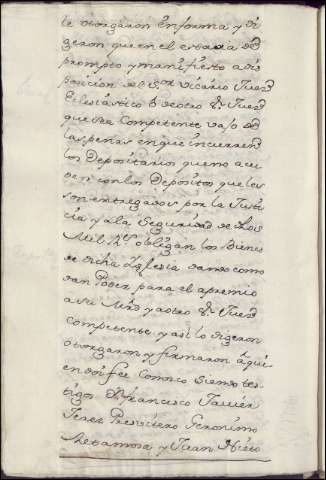 le otorgaron en forma y di
geron que en el estara de
prompto y manifiesto a dis
posicion del Sor. Vicario Juez
Eclesiástico o de otro Sr. Juez
que sea Competente vajo de
las penas en que incurren
los Depositarios que no acu
den con los Depósitos que les
son entregados por la Justi
cia y a la Seguridad de dos
Mil Rs. obligan los Bienes
de dicha Iglesia dando como
dan Poder para el apremio
a su Mrd. y a otro Sr. Juez
competente y así lo digeron
otorgaron y firmaron a qui
en doi fee Conosco siendo tes
tigos Dn. Francisco Javier
Jerez Presvitero Geronimo
y Juan Nieto